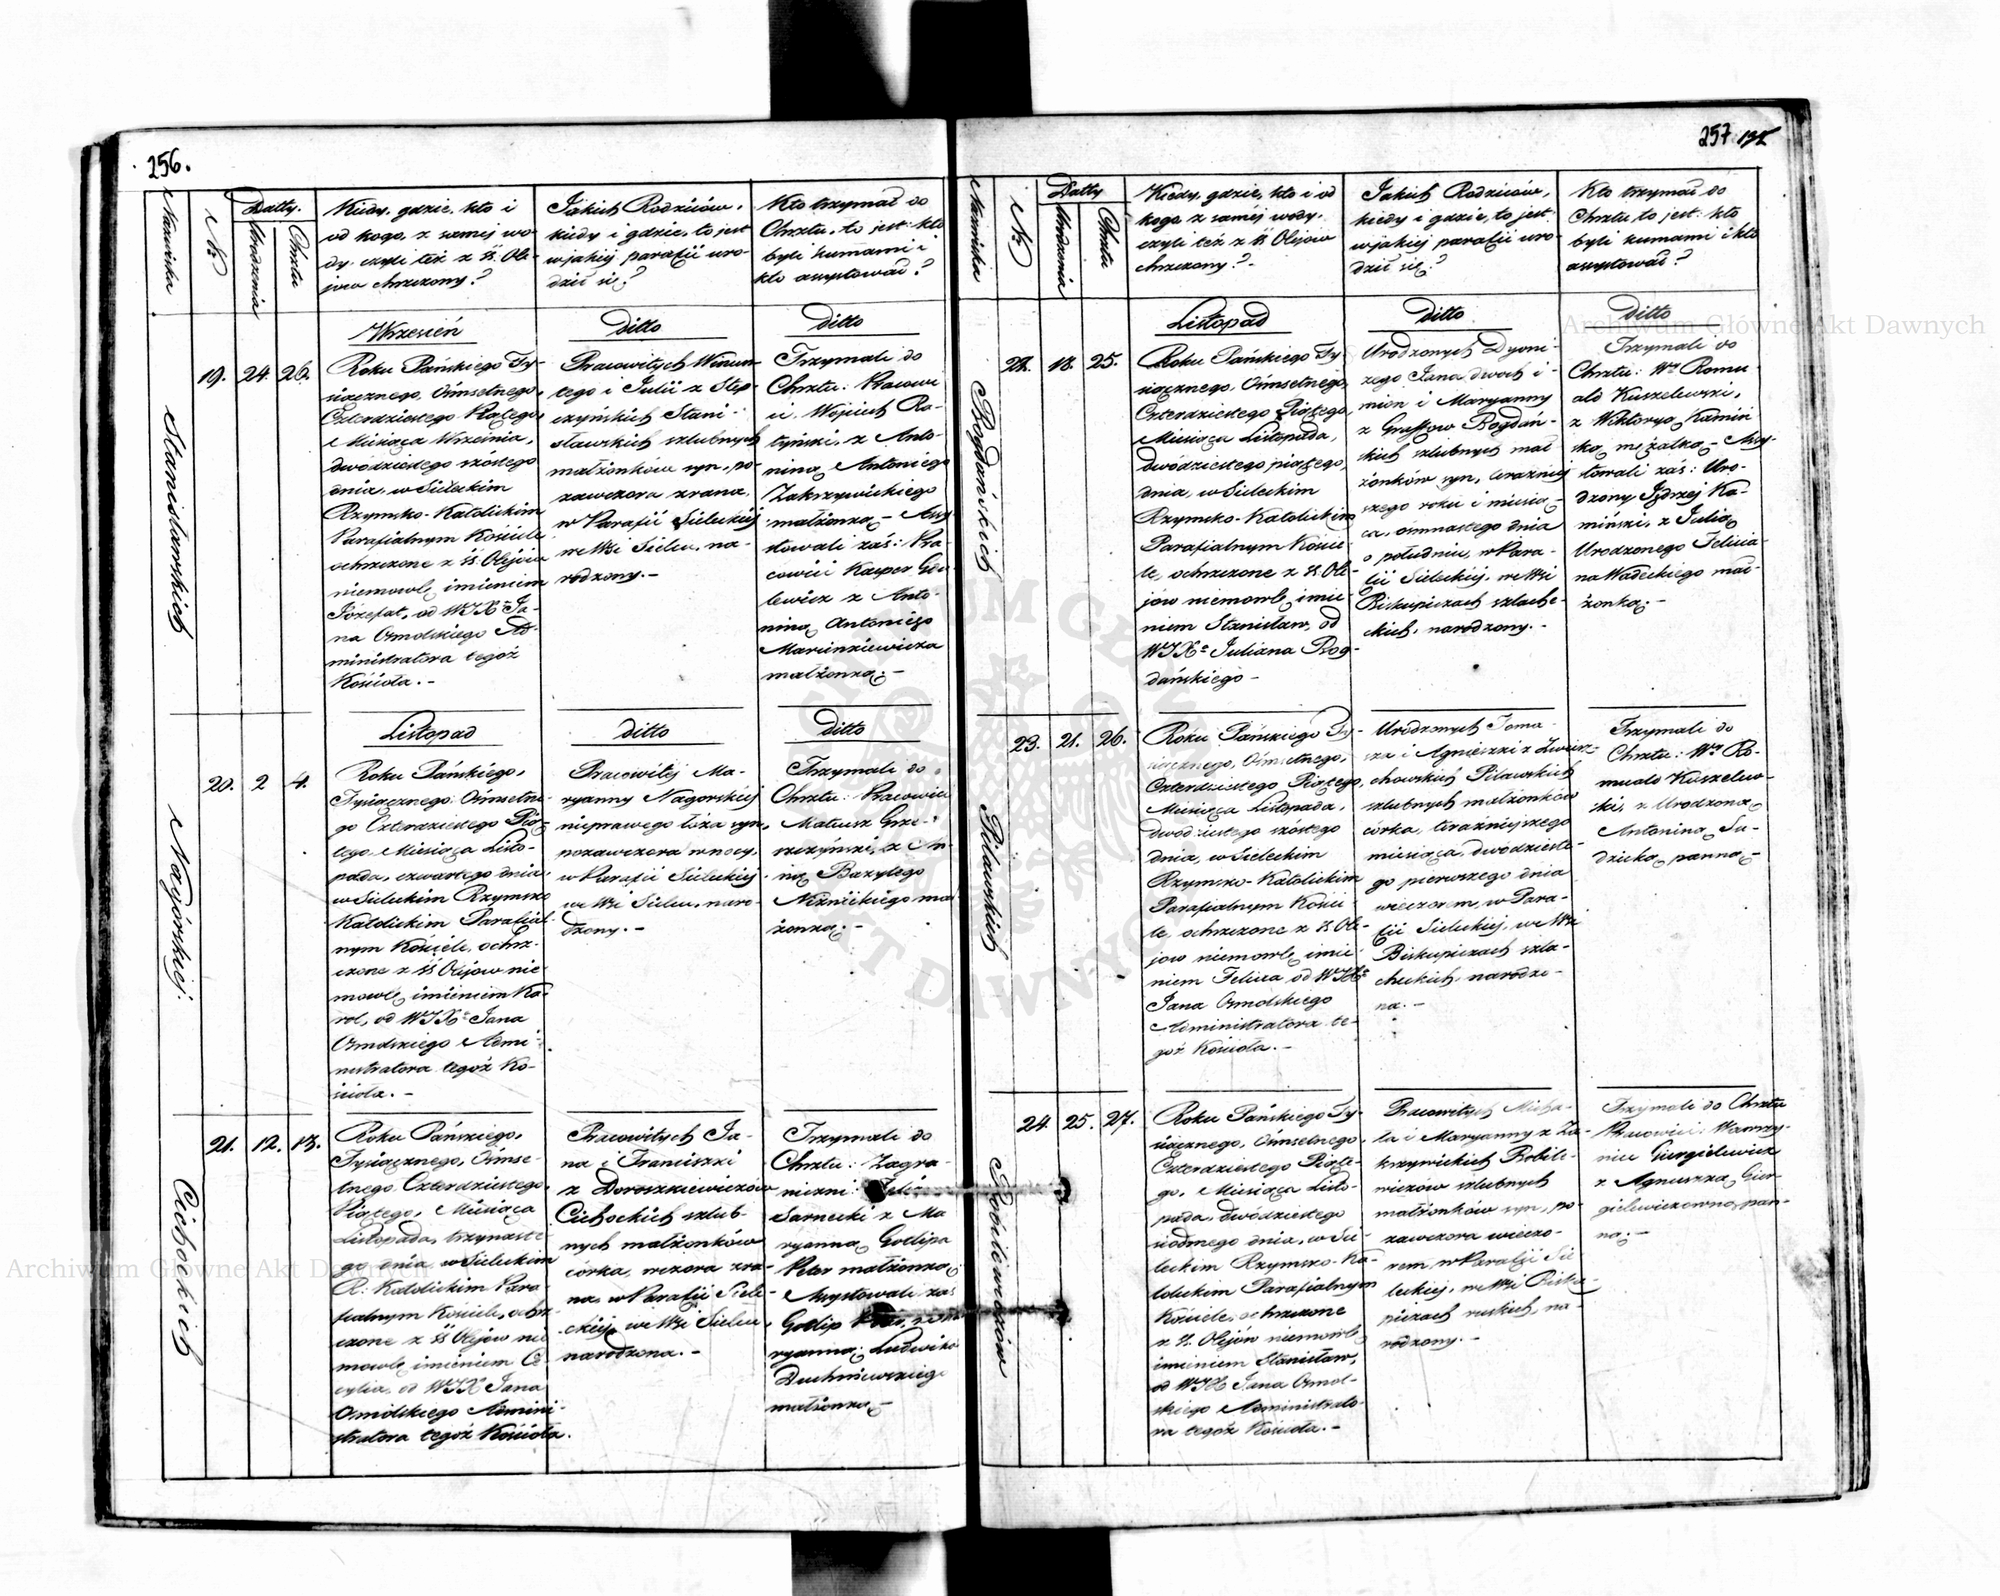 256.
Nazwiska
Nr
Datty.
Urodzenia
Chrztu
Kiedy, gdzie, kto i
od kogo, z samej wo-
dy czyli też z ŚŚ. Ole-
jow chrzczony?
Jakich Rodziców,
kiedy i gdzie, to jest
w jakiej parafii uro-
dził się?
Kto trzymał do
Chrztu, to jest: kto
byli kumami i
kto assystował?
Stanisławskich
19.
24.
26.
Wrzesień
Roku Pańskiego Ty-
siącznego, Ośmsetnego,
Czterdziestego Piątego,
Miesiąca Września,
dwódziestego szóstego
dnia, w Sieleckim
Rzymsko-Katolickim
Parafialnym Kościele
ochrzczone z ŚŚ. Olejów
niemowlę imieniem
Józefat, od WJX. Ja-
na Osmolskiego Ad-
ministratora tegoż
Kościoła. -
ditto
Pracowitych Wincen-
tego i Julii z Step-
czyńskich Stani-
sławskich szlubnych
małżonków syn, po-
zawczora zrana,
w Parafii Sieleckiej
we Wsi Sielcu, na-
rodzony. -
ditto
Trzymali do
Chrztu: Pracowi-
ci Wojciech Ra-
tyński, z Anto-
niną Antoniego
Zakrzywickiego
małżonką - Assy-
stowali zaś: Pra-
cowici Kasper
z Anto-
niną Antoniego
Marcinkiewicza
małżonką. -
Nagórskiej.
20.
2
4.
Listopad
Roku Pańskiego,
Tysiącznego Ośmsetne-
go Czterdziestego Pią-
tego Miesiąca Listo-
pada, czwartego dnia,
w Sieleckim Rzymsko
Katolickim Parafial-
nym Kościele, ochrz-
czone z ŚŚ Olejow nie-
mowlę imieniem Ka-
rol, od WJX. Jana
Osmolskiego Admi-
nistratora tegoż Ko-
ścioła. -
ditto
Pracowitej Ma-
ryanny Nagorskiej
nieprawego łoża syn,
pozawczora w nocy,
w Parafii Sieleckiej
we Wsi Sielcu, naro-
dzony. -
ditto
Trzymali do
Chrztu: Pracowici
Mateusz
z An-
ną Bazylego
małżonką. -
Cichockich
21.
12.
13.
Roku Pańskiego,
Tysiącznego, Ośmse-
tnego Czterdziestego
Piątego, Miesiąca
Listopada, trzynaste-
go dnia w Sieleckim
R: Katolickim Para-
fialnym Kościele, ochrz-
czone z ŚŚ Olejów nie-
mowlę imieniem Ce-
cylia, od WJX Jana
Osmolskiego Admini-
stratora tegoż Kościoła.
Pracowitych Ja-
na i Franciszki
z Doroszkiewiczów
Cichockich szlub-
nych małżonków
córka, wczora zra-
na, w Parafii Siele-
ckiej we Wsi Sielcu,
narodzona. -
Trzymali do
Chrztu: Zagra-
niczni:
Sarnecki z Ma-
ryanną Gotlipa
Peter małżonką
Assystowali zaś
Gotlip
ryanną: Ludwika
małżonką -
257
132
Nazwiska
Nr
Datty
Urodzenia
Chrztu
Kiedy, gdzie, kto i od
kogo z samej wody,
czyli też z ŚŚ Olejow
chrzczony? -
Jakich Rodziców,
kiedy i gdzie, to jest
w jakiej parafii uro-
dził się?
Kto trzymał do
Chrztu, to jest: kto
byli kumami i kto
assystował?
Bogdańskich
22.
18.
25.
Listopad
Roku Pańskiego Ty-
siącznego, Ośmsetnego,
Czterdziestego Piątego,
Miesiąca Listopada,
dwódziestego piątego,
dnia, w Sieleckim
Rzymsko-Katolickim
Parafialnym Koście-
le, ochrzczone z ŚŚ. Ole-
jów niemowlę imie-
niem Stanisław, od
WJX. Juliana Bog-
dańskiego -
ditto
Urodzonych Dyoni-
zego Jana dwoch i-
mion i Maryanny
z Bogdań-
skich szlubnych mał-
żonków syn, teraźniej-
szego roku i miesią-
ca, ośmnastego dnia
o południu, w Para-
fii Sieleckiej, we Wsi
Biskupiczach szlache-
ckich, narodzony. -
ditto
Trzymali do
Chrztu: Wny Romu-
ald Kuszelewski,
z Wiktoryą Kamiń-
ską mężatką - Assy-
stowali zaś: Uro-
dzony Jędrzej Ka-
miński, z Julią
Urodzonego Felicia-
na Wadeckiego mał-
żonką. -
Pilawskich
23.
21.
26.
Roku Pańskiego Ty-
siącznego, Ośmsetnego,
Czterdziestego Piątego,
Miesiąca Listopada,
dwódziestego szóstego
dnia, w Sieleckim
Rzymsko-Katolickim
Parafialnym Koście-
le, ochrzczone z ŚŚ Ole-
jow niemowlę imie-
niem Felicia, od WJX.
Jana Osmolskiego
Administratora te-
goż Kościoła. -
Urodzonych Toma-
sza i Agnieszki z
Pilawskich
szlubnych małżonków
córka, teraźniejszego
miesiąca, dwódzieste-
go pierwszego dnia
wieczorem, w Para-
fii Sieleckiej, we Wsi
Biskupiczach szla-
checkich, narodzo-
na. -
Trzymali do
Chrztu: Wny Ro-
muald Kuszelew-
ski, z Urodzoną
Antoniną Su-
dzicką panną -
24.
25.
27.
Roku Pańskiego Ty-
siącznego, Ośmsetnego,
Czterdziestego Piąte-
go, Miesiąca Listo-
pada, dwódziestego
siódmego dnia, w Sie-
leckim Rzymsko-Ka-
tolickim Parafialnym
Kościele, ochrzczone
z ŚŚ. Olejów niemowlę
imieniem Stanisław,
od WJX Jana Osmol-
skiego Administrato-
ra tegoż Kościoła. -
Pracowitych Micha-
ła i Maryanny z Za-
krzywickich
szlubnych
małżonków syn, po-
zawczora wieczo-
rem, w Parafii Sie-
leckiej, we Wsi Bisku-
piczach ruskich, na-
rodzony. -
Trzymali do Chrztu
Pracowici: Wawrzy-
niec Giergielewicz
z Agnieszką Gier-
gielewiczowną pan-
ną. -
Archiwum Główne Akt Dawnych
Archiwum Główne Akt Dawnych